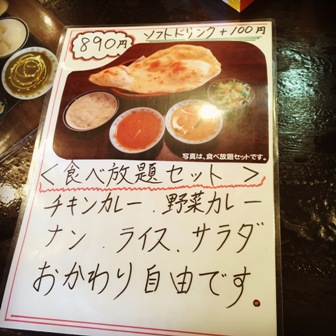 890円 ソフトドリンク+100円
写真は、食べ放題セットです。
＜食べ放題セット＞
チキンカレー 野菜カレー
ナン．ライス、サラダ
おかわり自由です。